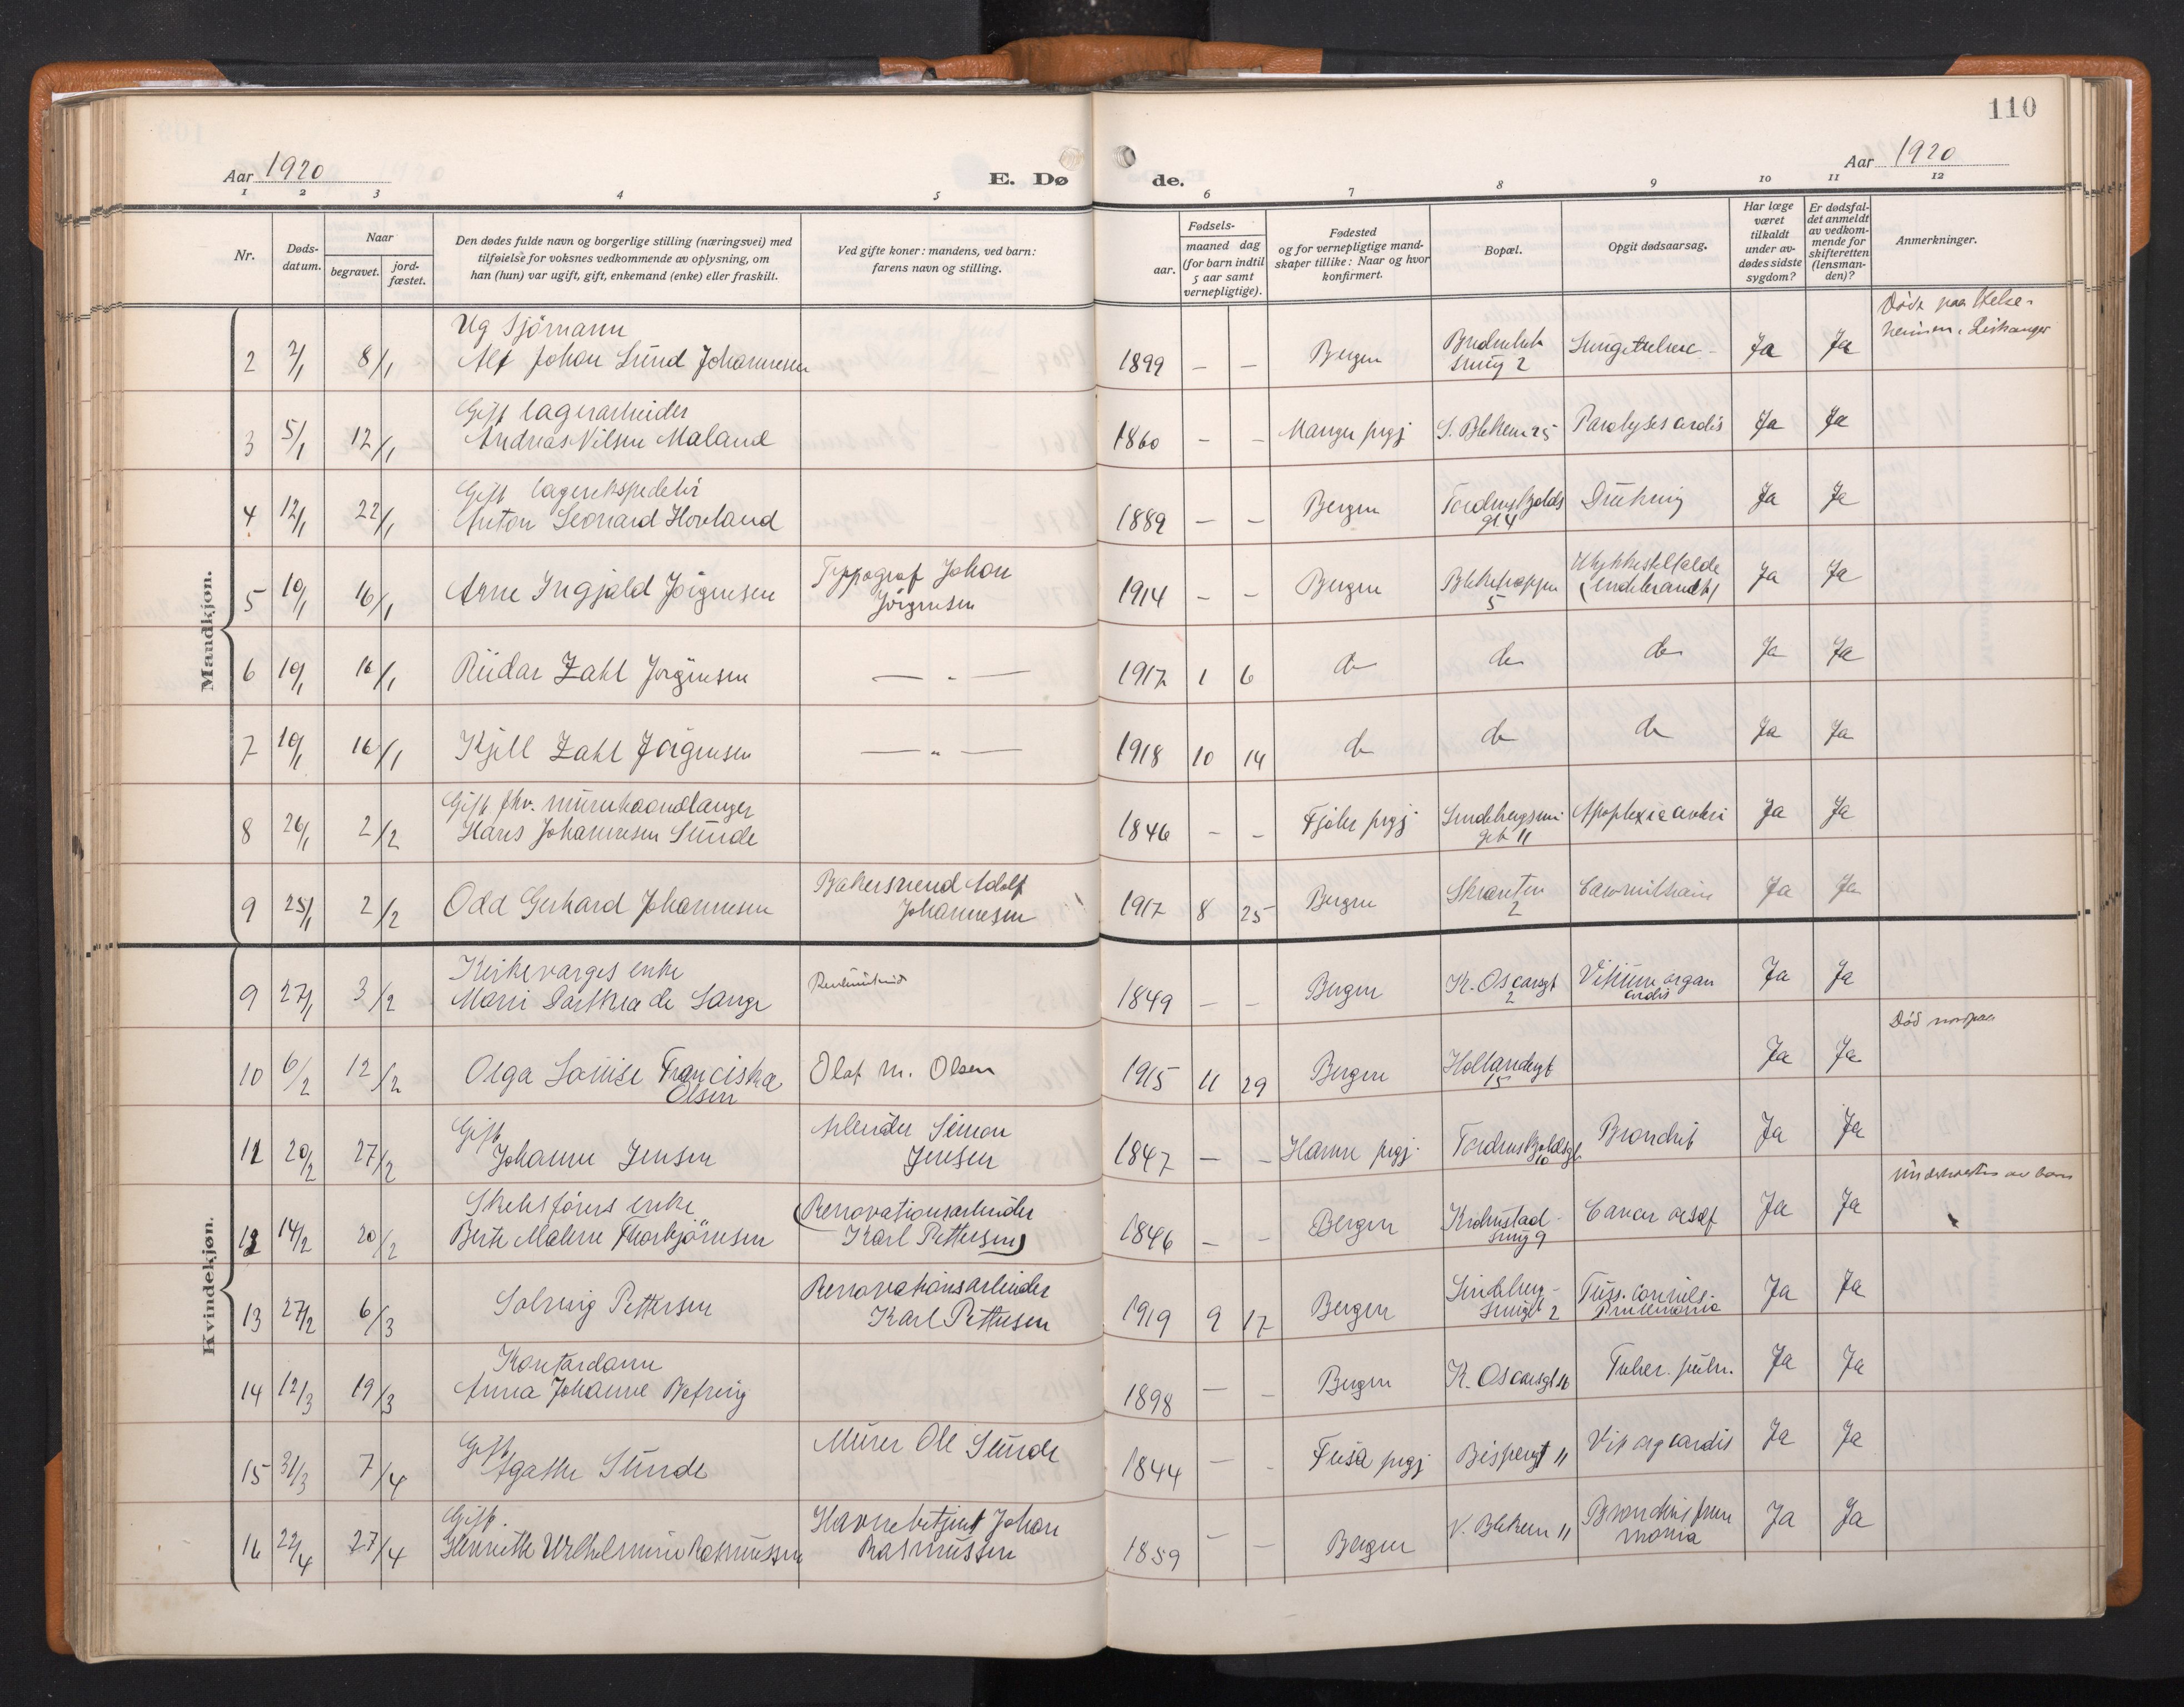 110
Aar 1920
E. Dø
de.
Aar 1920
1 2 3 4 5 6 7 8 9 10 11 12
Nr.
Døds-
datum.
Naar
begravet.
jord-
fæstet.
Den dødes fulde navn og borgerlige stilling (næringsvei) med
tilføielse for voksnes vedkommende av oplysning, om
han (hun) var ugift, gift, enkemand (enke) eller fraskilt.
Ved gifte koner: mandens, ved barn:
farens navn og stilling.
Fødsels-
aar.
maaned dag
(for barn indtil
5 aar samt
vernepligtige).
Fødested
og for vernepligtige mand-
skaper tillike: Naar og hvor
konfirmert.
Bopæl.
Opgit dødsaarsag.
Har læge
været
tilkaldt
under av-
dødes sidste
sygdom?
Er dødsfal-
det anmeldt
av vedkom-
mende for
skifteretten
(lensman-
den)?
Anmerkninger.
Mandkjøn.
Ug sjömann
2 2/1 8/1 Alf Johan Lund Johannesen 1899 — — Bergen 2 Ja Ja
Døde paa
Leikanger
Gift lagerarbeider
3 5/1 12/1 Andreas Nilsen Maland 1860 - - Manger prgj S. Blekevei 25 Paralyses cordis Ja Ja
Gift lagerekspeditör
4 12/1 22/1 Anton Leonard Hovland 1889 — — Bergen Tordenskjolds Drukning Ja Ja
gt 4
Typograf Johan
5 10/1 16/1 Arne Ingjald Jörgensen Jörgensen 1914 — — Bergen 5 Ulykkestilfælde Ja Ja
(indebrændt)
6 10/1 16/1 Reidar Zahl Jörgensen — " — 1917 1 6 do do do Ja Ja
7 10/1 16/1 Kjell Zahl Jörgensen — " — 1918 10 14 do do do Ja Ja
Gift fhv. murerhaandlanger
8 26/1 2/2 Hans Johannesen Sunde 1846 - - Fjaler prgj 11 Apoplexia cerebri Ja Ja
Bakersvend Adolf
9 25/1 2/2 Odd Gerhard Johannesen Johannesen 1917 8 25 Bergen Skranten Ja Ja
2
Kvindekjøn.
Kirkeverges enke
9 27/1 3/2 de Lange 1849 — - Bergen K. Oscarsgt Vitium organ Ja Ja
2 cordis
10 6/2 12/2 Olga Louise Franciska Olaf M. Olsen 1915 11 29 Bergen Hollendergt Ja Ja
Olsen 15
Død
Gift Arbeider Simon
11 20/2 27/2 Johanne Jensen Jensen 1847 — - Hamre prgj. Tordenskjoldsgt Bronchit Ja Ja
10
Skibsförers enke (Renovationsarbeider
12 14/2 20/2 Berte Malene Thorbjörnsen Karl Pettersen) 1846 - - Bergen Kronstad- Cancer oesof Ja Ja
9
Understøttes av
Renovationsarbeider
13 27/2 6/3 Solveig Pettersen Karl Pettersen 1919 9 17 Bergen 2 Tuss. convuls- Ja Ja
Pneumonia
Kontordame
14 12/3 19/3 Anna Johanne Befring 1898 — - Bergen K. Oscarsgt 16 Tuber. pulm. Ja Ja
Gift Murer Ole Sunde
15 31/3 7/4 Agathe Sunde 1844 — - Fusa prgj Bispengt 11 Vit org cordis Ja Ja
Gift. Havnebetjent Johan
16 22/4 27/4 Henriette Wilhelmine Rasmussen Rasmussen 1859 — — Bergen V. Blekevei 11 Bronchitis pneu Ja Ja
monia